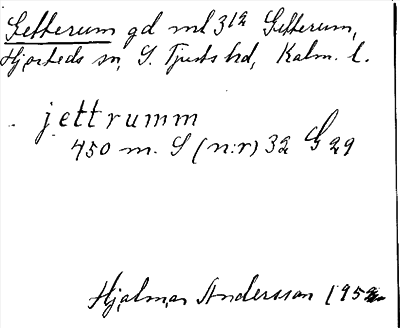 Getterum gd ml 3 1/2 Getterum,
Hjorteds sn, S. Tjusts hd, Kalm. l.
jettrumm
450 m. S (n:r) 32 G 29
Hjalmar Andersson 195